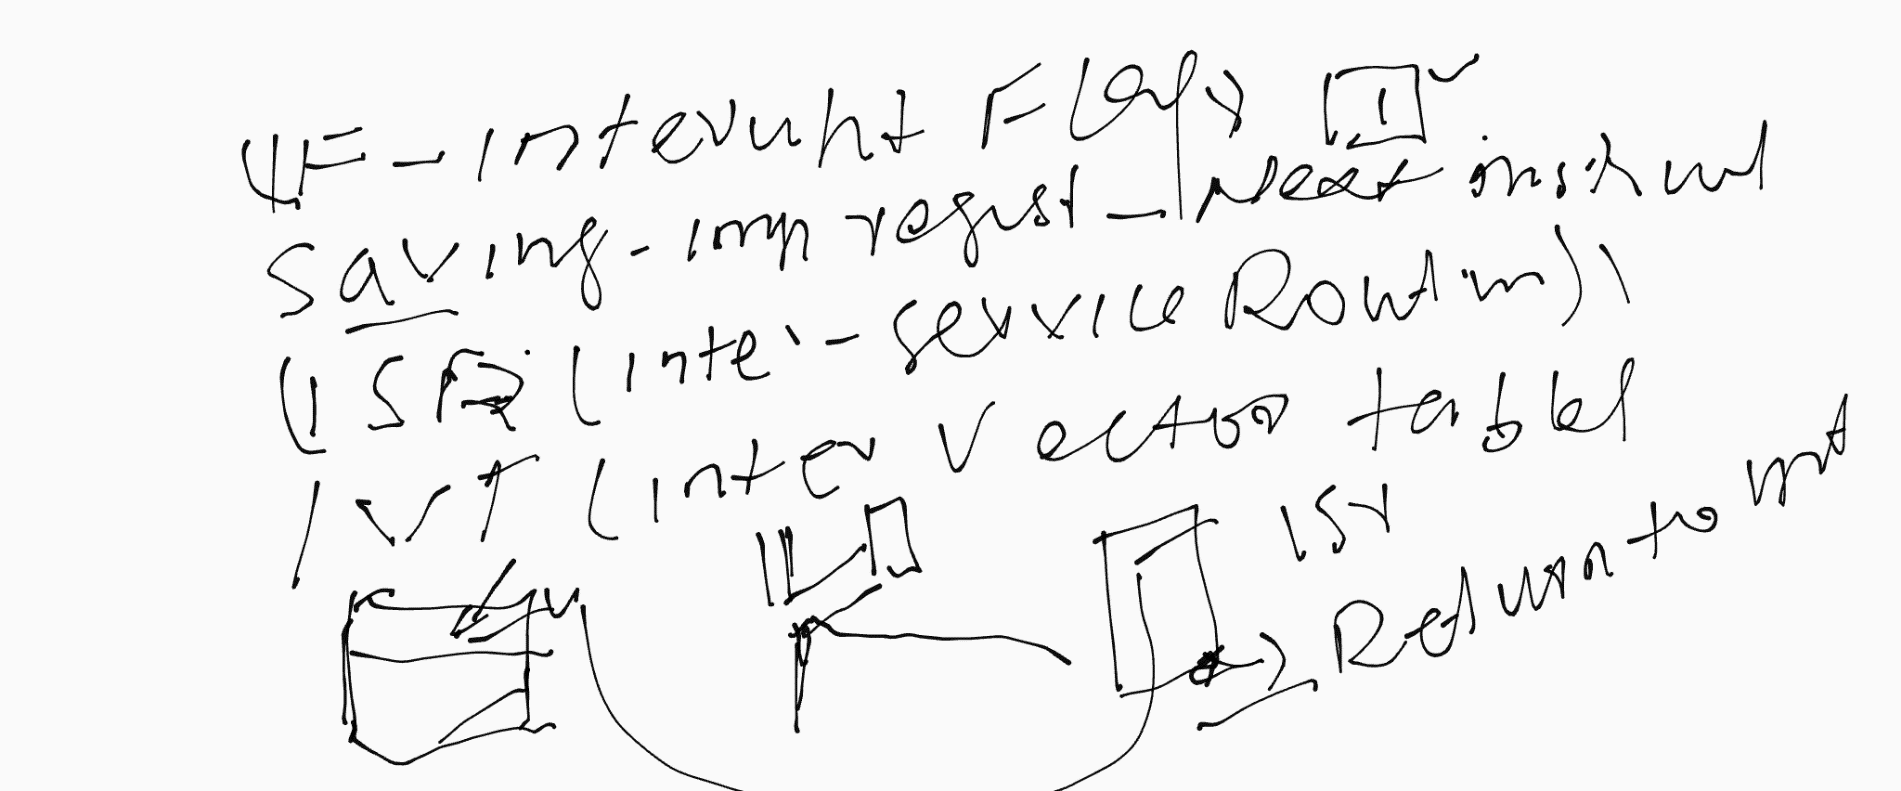 IF - Interupt Flag > 1
Saving - imp regist - Next instruct
ISR (inte. - service Routin))
IVT (inter Vector table)
ISr
Return to